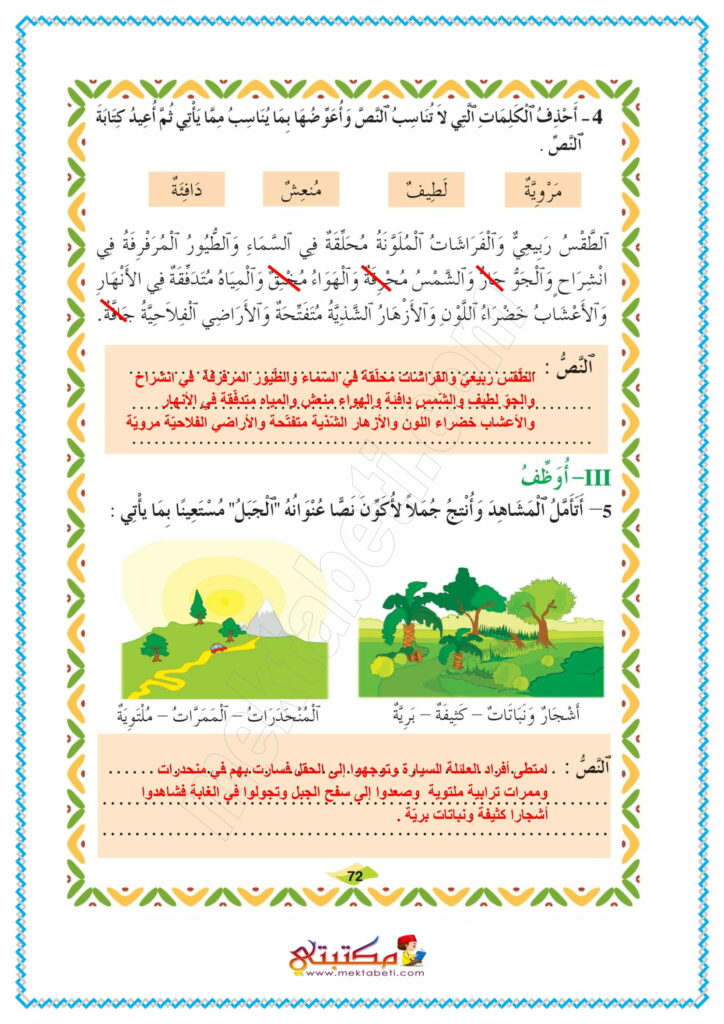 4 – أَحْذِفُ ٱلْكَلِمَاتِ ٱلَّتِي لاَ تُنَاسِبُ ٱلنَّصَّ وَأُعَوِّضُهَا بِمَا يُنَاسِبُ مِمَّا يَأْتِي ثُمَّ أُعِيدُ كِتَابَةَ
ٱلنَّصِّ .
مَرْوِيَّةٌ لَطِيفٌ مُنعِشٌ دَافِئَةٌ
ٱلطَّقْسُ رَبِيعِيٌّ وَٱلْفَرَاشَاتُ ٱلْمُلَوَّنَةُ مُحَلِّقَةٌ فِي ٱلسَّمَاءِ وَٱلطُّيُورُ ٱلْمُرَفْرِفَةُ فِي
انْشِرَاحٍ وَٱلْجَوُّ حَارٌّ وَٱلشَّمْسُ مُحْرِقَةٌ وَٱلْهَوَاءُ مُخْنِقٌ وَٱلْمِيَاهُ مُتَدَفِّقَةٌ فِي ٱلأَنْهَارِ
وَٱلأَعْشَابُ خَضْرَاءُ ٱللَّوْنِ وَٱلأَزْهَارُ ٱلشَّذِيَّةُ مُتَفَتِّحَةٌ وَٱلأَرَاضِي ٱلْفِلاَحِيَّةُ جَافَّةٌ.
ٱلنَّصُّ : الطّقس ربيعيّ والفراشات محلّقة في السّماء والطّيور المرفرفة في انشراح
والجوّ لطيف والشّمس دافئة والهواء منعش والمياه متدفّقة في الأنهار
والأعشاب خضراء اللون والأزهار الشّذية متفتّحة والأراضي الفلاحيّة مرويّة
III– أُوَظِّفُ
5– أَتَأَمَّلُ ٱلْمَشَاهِدَ وَأُنْتِجُ جُمَلاً لأُكَوِّنَ نَصًّا عُنْوَانُهُ "ٱلْجَبَلُ" مُسْتَعِينًا بِمَا يَأْتِي :
أَشْجَارٌ وَنَبَاتَاتٌ – كَثِيفَةٌ – بَرِيَّةٌ
ٱلْمُنْحَدَرَاتُ – ٱلْمَمَرَّاتُ – مُلْتَوِيَةٌ
ٱلنَّصُّ : امتطى أفراد العائلة السيارة وتوجهوا إلى الحقل فسارت بهم في منحدرات
وممرات ترابية ملتوية وصعدوا إلى سفح الجبل وتجولوا في الغابة فشاهدوا
أشجارا كثيفة ونباتات بريّة .
72
مكتبتي
www.mektabeti.com
mektabeti.com